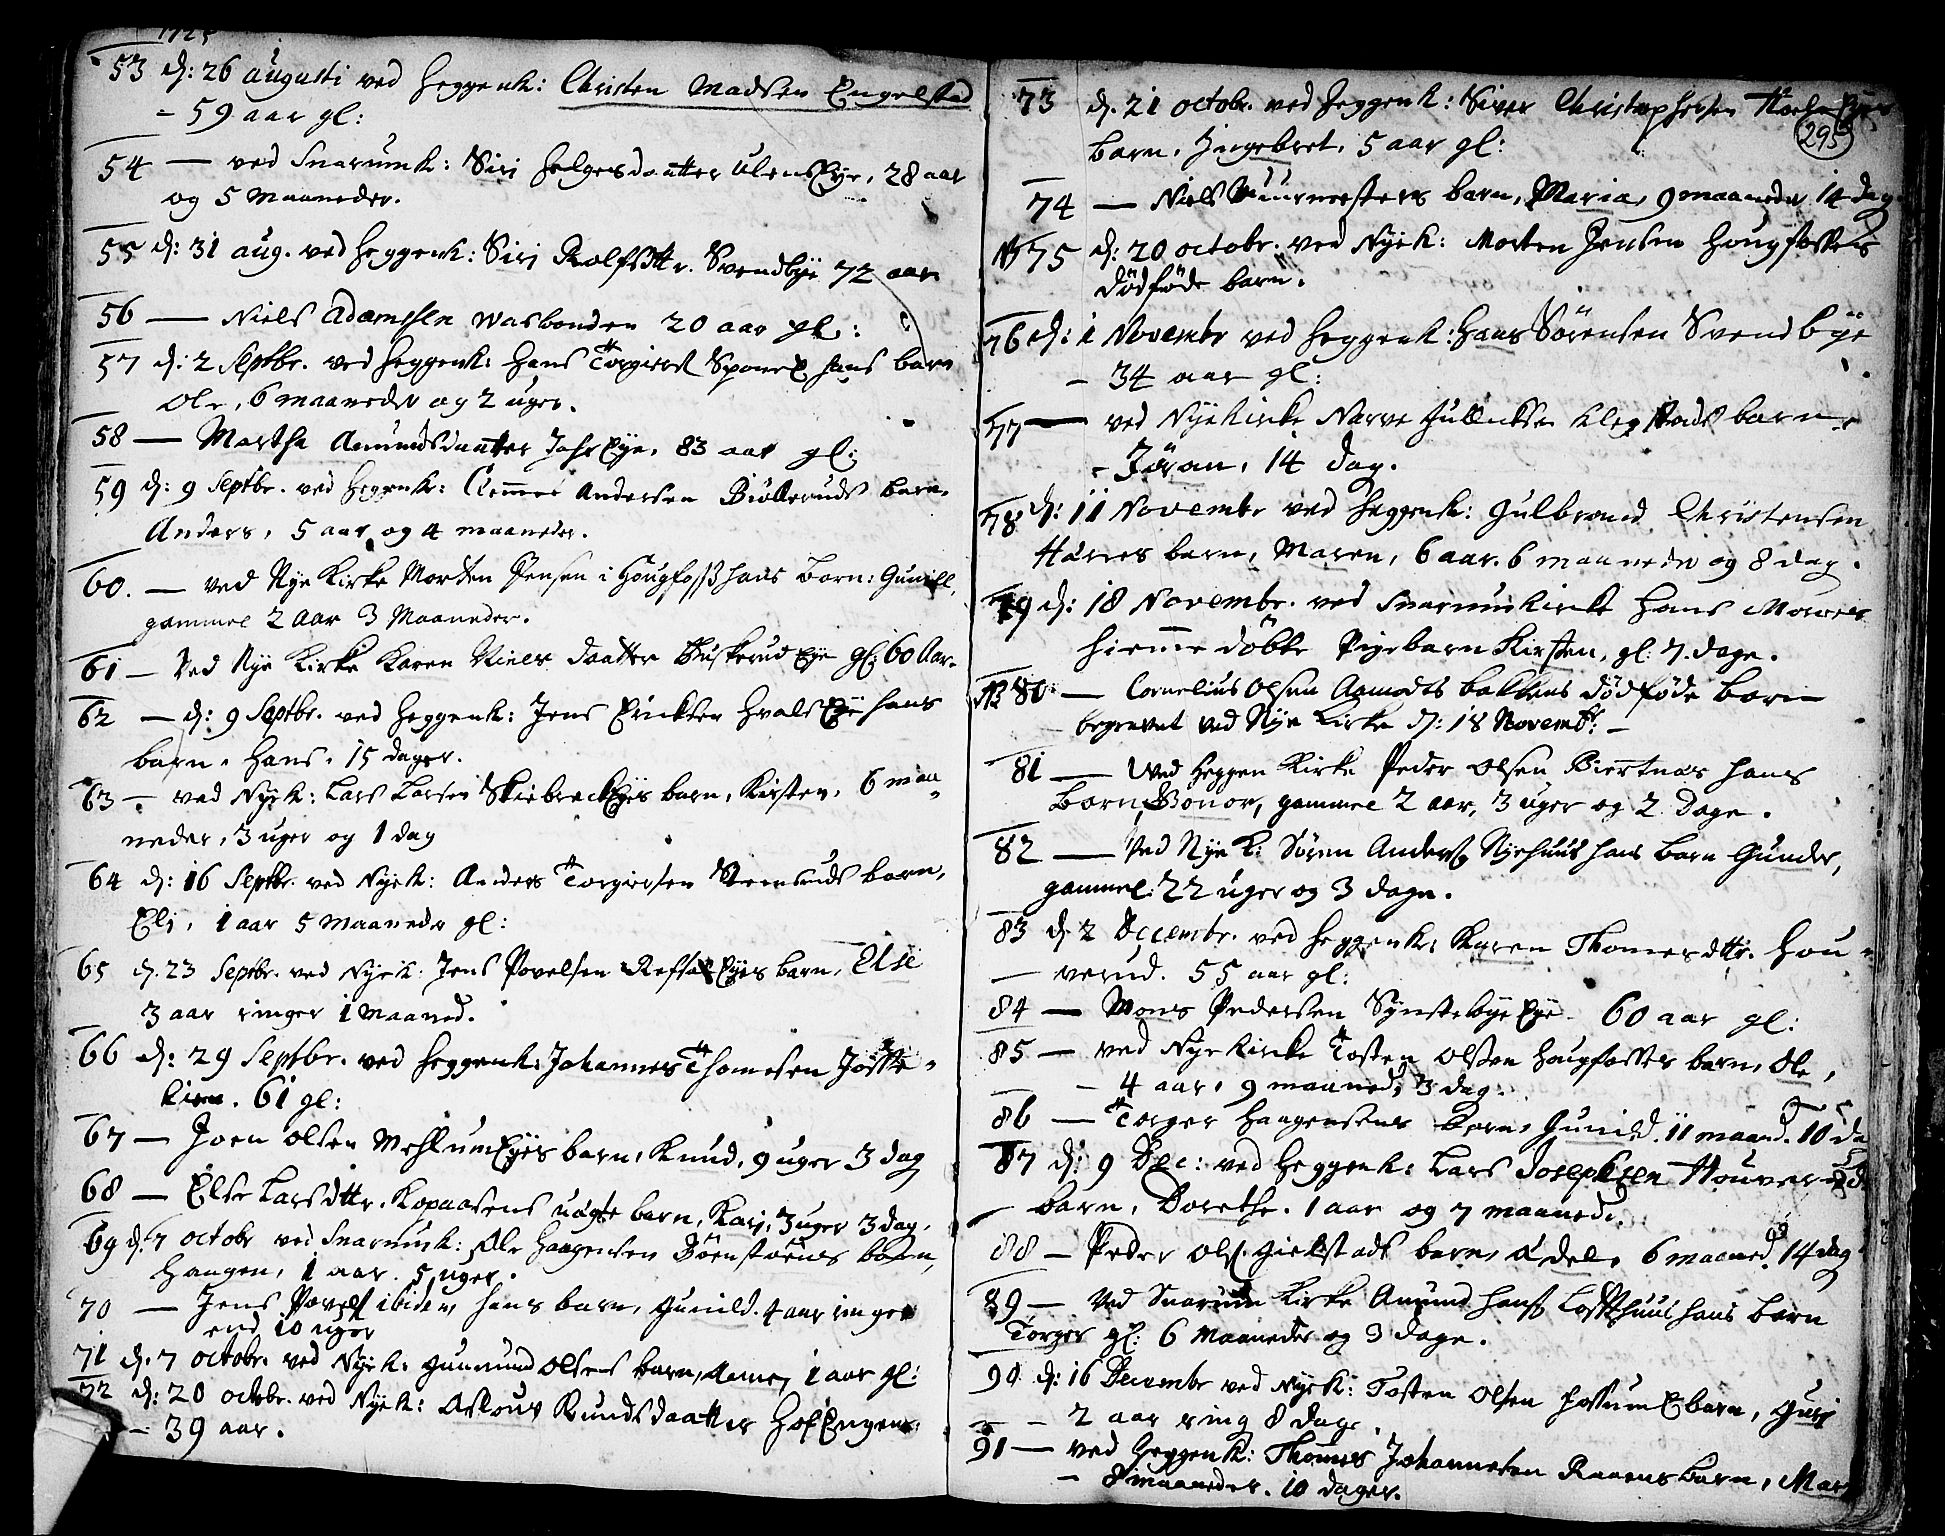 1725
53 d: 26 augusti ved Heggenk: Christen Madsen Engelstad
- 59 aar gl:
54 — ved Snarumk: Siri Helgesdaatter UlensEye, 28 aar
og 5 Maaneder.
55 d: 31 aug. ved Heggenk: Siri Rolfsdttr. Svendbye 72 aar
56 — Niels Adamssen Wasbonden 20 aar gl:
57 d: 2 Septbr. ved Heggenk: Hans Torgiers. hans barn
Ole, 6 maaneder og 2 uger.
58 — Martha Amundsdaatter JahrEye, 83 aar gl:
59 d: 9 Septbr. ved Heggenk: Clemmet Andersen Biølleruds barn,
Anders, 5 aar og 4 maaneder.
60. — ved Nye Kirke Morten Jensen i Hougfoss hans Barn: Gunild,
gammel 2 Aar 3 Maaneder.
61 — Ved Nye Kirke Karen Niels daatter Buskerud Eye gl: 60 Aar.
62 — d: 9 Septbr. ved Heggenk: Jens Ericksen HvalsEye hans
barn, Hans, 15 dager.
63 — ved Nyek: Lars Larsen SkiebreckEyes barn, Kirsten, 6 maa
neder, 3 uger og 1 dag
64 d: 16 Septbr. ved Nyek: Anders Torgiersen barn,
Eli, 1 aar 5 maaneder gl:
65 d. 23 Septbr. ved Nyek: Jens Povelsen Refsal Eyes barn, Else
3 aar ringer 1 Maaned.
66 d: 29 Septbr. ved Heggenk: Johannes Thomesen
61 gl:
67 — Joen Olsen MehlumEyes barn, Knud, 9 uger 3 dag
68 — Else Larsdttr. Kopaasens uægte barn, Kari, 3 uger 3 dag.
69 d. 7 octobr ved Snarumk: Ole Haagensen barn,
Haagen, 1 aar. 5 uger.
70 — Jens Povels. ibidem, hans barn, Gunild. 4 aar ringer
end 10 uger
71 d. 7 octobr. ved Nyek: Gunmund Olsens barn, Anne, 1 aar gl:
72 d: 20 octobr. ved Nyek: Aslour Knudsdaatter HofEngen
- 39 aar.
295
73 d. 21 octobr. ved Heggenk: Siver Christophersen
barn, Ingebret, 5 aar gl:
74 — Niels Muurmesters barn, Maria, 9 maaneder 14 dag
NB 75 d: 20 octobr. ved Nyek: Morten Jensen Hougfosses
dødføde barn.
76 d: 1 Novembr ved Heggenk: Hans Sørensen Svendbye
- 34 aar gl:
77 — ved Nyekirke Narve Gulbrandsen Klegstads barn
- Jøran, 14 dag.
78 d: 11 Novembr ved Heggenk: Gulbrand Christensen
Hæres barn, Maren, 6 aar. 6 maaneder og 8 dag.
79 d: 18 Novembr. ved Snarumkircke Hans
hiemme døbte Pigebarn Kirsten, gl: 7. dage.
NB 80 — Cornelius Olsen Aamodts bakkens dødføde barn
begravet ved Nye Kirke d: 18 Novemb: —
81 — Ved Heggen Kirke Peder Olsen Biertnæs hans
barn, Gonor, gammel 2 aar, 3 uger og 2 dage.
82 — Ved Nye K: Søren Anders. Nyehuus hans barn Gunder,
gammel: 22 uger og 3 dage.
83 d. 2 Decembr. ved Heggenk: Karen Thomesdttr. Hou
— verud. 55 aar gl:
84 — Mons Pedersen SynstebyeEye. 60 aar gl:
85 — ved Nyekircke Tosten Olsen Hougfosses barn, Ole,
- 4 aar, 9 maaned, 3 dag.
86 — Torger Haagensens barn, Gunild. 11 maand. 10 da
87 d: 9 Dec: ved Heggenk: Lars Josephsen Houverud
barn, Dorethe. 1 aar og 7 maaned.
88 — Peder Ols. Gielstads barn, Adel. 6 maaned. 14 dag
89 — Ved Snarum Kirke Amund Hans. Loftthuus hans barn
Torger gl: 6 Maaneder og 3 dage.
90 d: 16 Decembr ved Nyek: Tosten Olsen FossumE barn, Guri
- 2 aar ring 8 dage.
91 — ved Heggenk: Thomes Johannesen Raaens barn, Mar
- 8 maaneder. 10 dager.